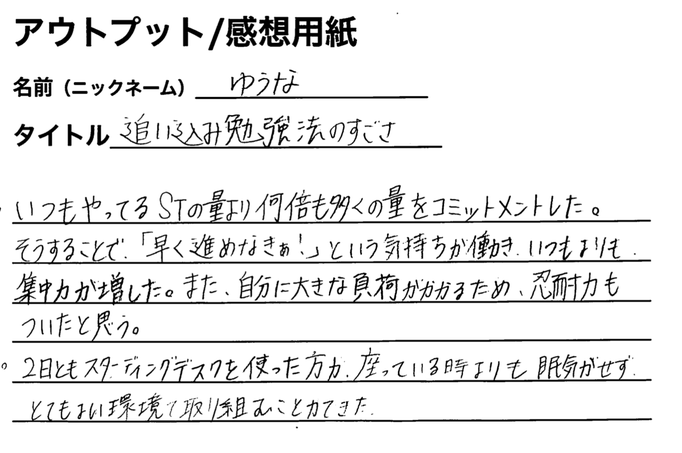 アウトプット/感想用紙
名前（ニックネーム） ゆうな
タイトル 追い込み勉強法のすごさ
いつもやってるSTの量より何倍も多くの量をコミットメントした。
そうすることで、「早く進めなきゃ！」という気持ちが働き、いつもよりも、
集中力が増した。また、自分に大きな負荷がかかるため、忍耐力も
ついたと思う。
。2日ともスターディングデスクを使った方が、座っている時よりも眠気がせず、
とてもよい環境で取り組むことができた。